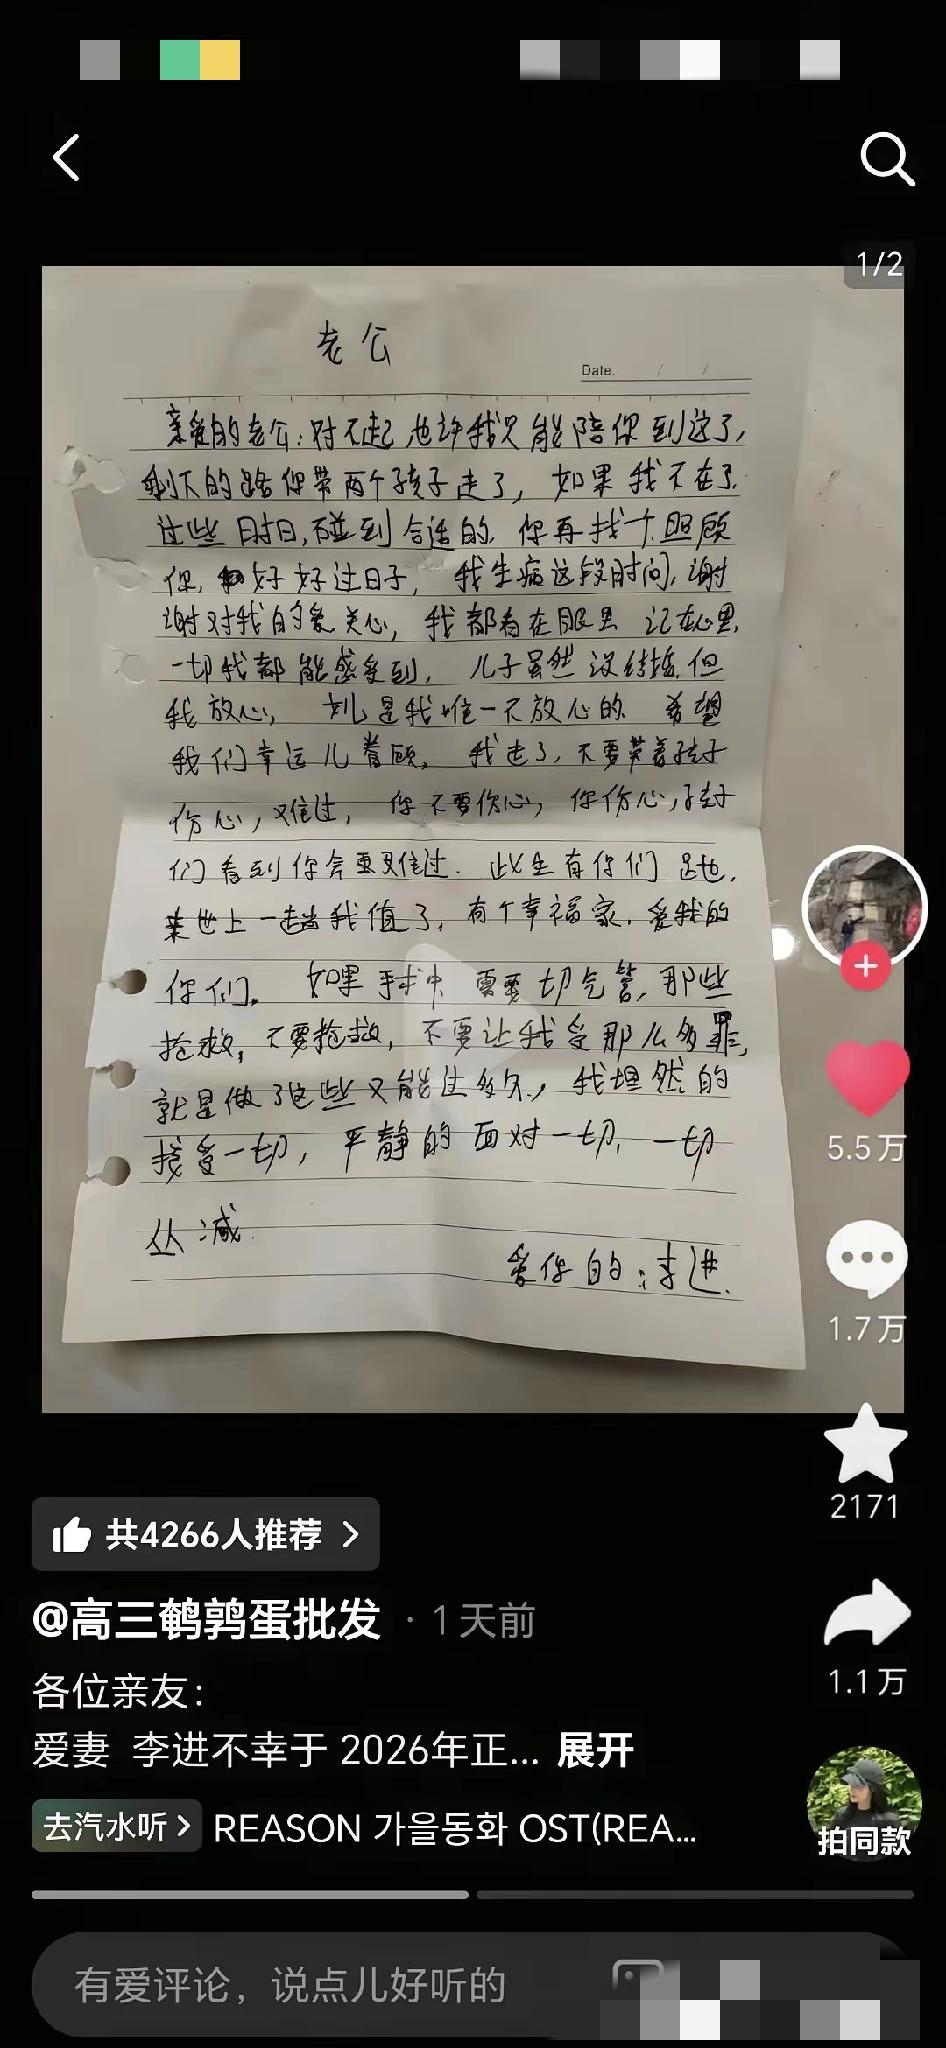 1/2
老公
Date. / /
亲爱的老公:对不起也许我只能陪你到这了,
剩下的路你带两个孩子走了,如果我不在了.
过些时日,碰到合适的,你再找个照顾
你,好好过日子,我生病这段时间,谢
谢对我的爱关心,我都看在眼里 记在心里,
一切我都能感受到,儿子虽然没结婚,但
我放心,女儿是我唯一不放心的 希望
我们幸运儿眷顾,我走了,不要带着孩子
伤心,难过,你不要伤心,你伤心,孩子
们看到你会更难过.此生有你们
来世上一趟我值了,有个幸福家.爱我的
你们。如果手术中需要切气管,那些
抢救,不要抢救,不要让我受那么多罪,
就是做了这些又能过多久,我坦然的
接受一切,平静的面对一切,一切
从减.
爱你的:李进.
5.5万
1.7万
2171
1.1万
共4266人推荐 >
@高三鹌鹑蛋批发 · 1天前
各位亲友:
爱妻 李进不幸于 2026年正... 展开
去汽水听 > REASON 가을동화 OST(REA...
拍同款
有爱评论，说点儿好听的